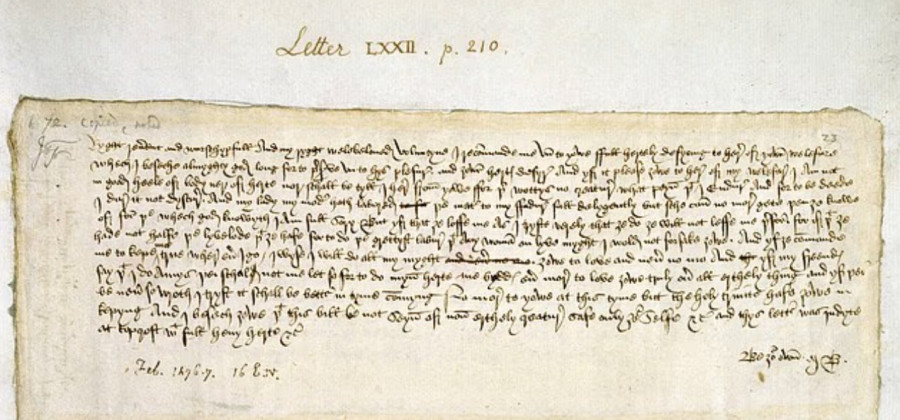 Letter LXXII. p. 210.
23
Ryght reverent and wurschypfull and my ryght welebeloved Voluntyne I recomande me vn to yowe full hertely desyryng to here of yowr welefare
whech I beseche almyghty god long for to preserve vn to hys plesure and yowr hertys desyre And yf it please yowe to here of my welefare I am not
in good heele of body ner of herte nor schall be tyll I here from yowe for þer wottys no creature what peyn þt I endure And for to be deede
I dure it not dyscure And my lady my moder hath labored þe mater to my fadure full delygently but sche can no more gete þen ye knowe
of for þe whech god knowyth I am full sory But yf that ye loffe me as I tryste verely that ye do ye will not leffe me þerfor for if þt ye
hade not halfe þe lyvelode þt ye hafe for to do þe grettyst labure þt any woman on lyve myght I wold not forsake yowe And yf ye comande
me to kepe me true where euer I go I wyse I will do all my myght yowe to love and neuer no mo And yf my freendys
say þt I do amys þei schal not me let so for to do myn herte me bydds euer more to love yowe truly ouer all erthely thing and yf þei
be neuer so wroth I tryst it schall be bettur in tyme comyng No more to yowe at this tyme but the holy trinite hafe yowe in
kepyng And I besech yowe þt this bill be not seyn of non erthely creature safe only yowr selfe &c and thys lettur was indyte
at topcroft wt full hevy herte &c
Be yowr own MB.
Feb. 1476-7. 16 E. IV.